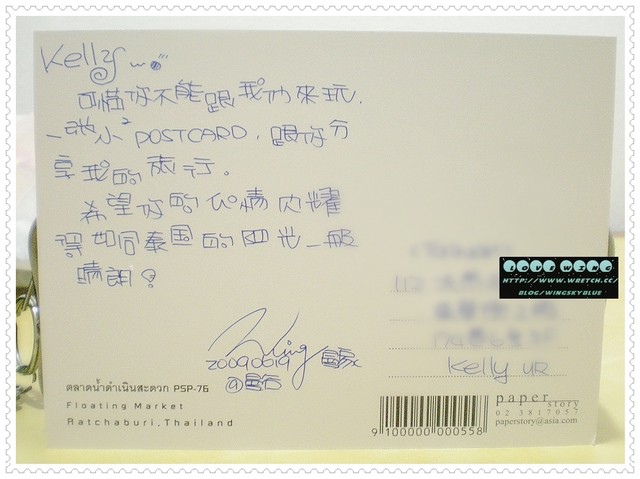 Kelly
可憐你不能跟我們來玩.
一張小² POSTCARD, 跟你分
享我的旅行。
希望你的心情閃耀
得如同泰国的陽光一般
晴朗!
Wing
20090619
ตลาดน้ำดำเนินสะดวก PSP-76
Floating Market
Ratchaburi, Thailand
Kelly UR
9 100000 000558
paper
story
02 3817057
paperstory@asia.com
LOVE WING
HTTP://WWW.WRETCH.CC/
BLOG/WINGSKYBLUE